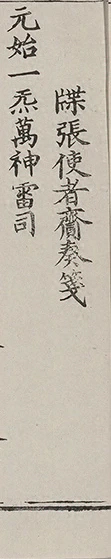 牒張使者齎奏箋
元始一炁萬神雷司